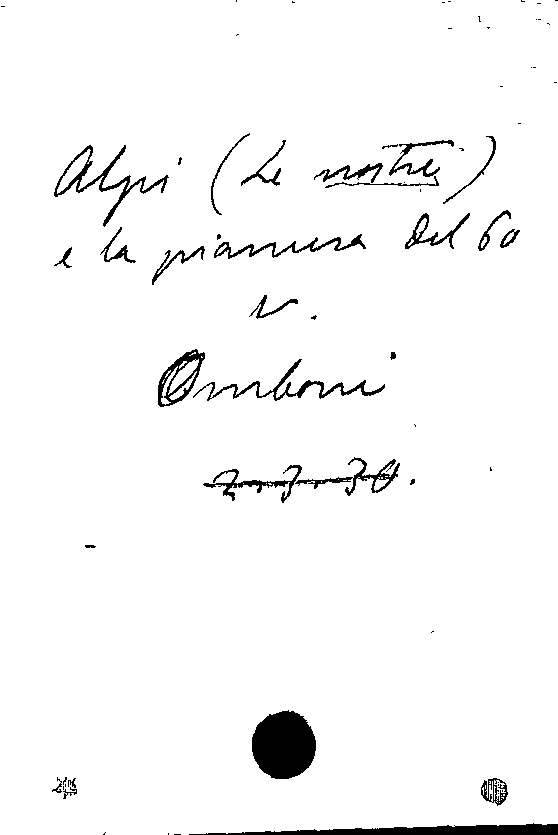 Alpi (Le nostre)
e la pianura del Po
v.
Omboni
2.3.30.